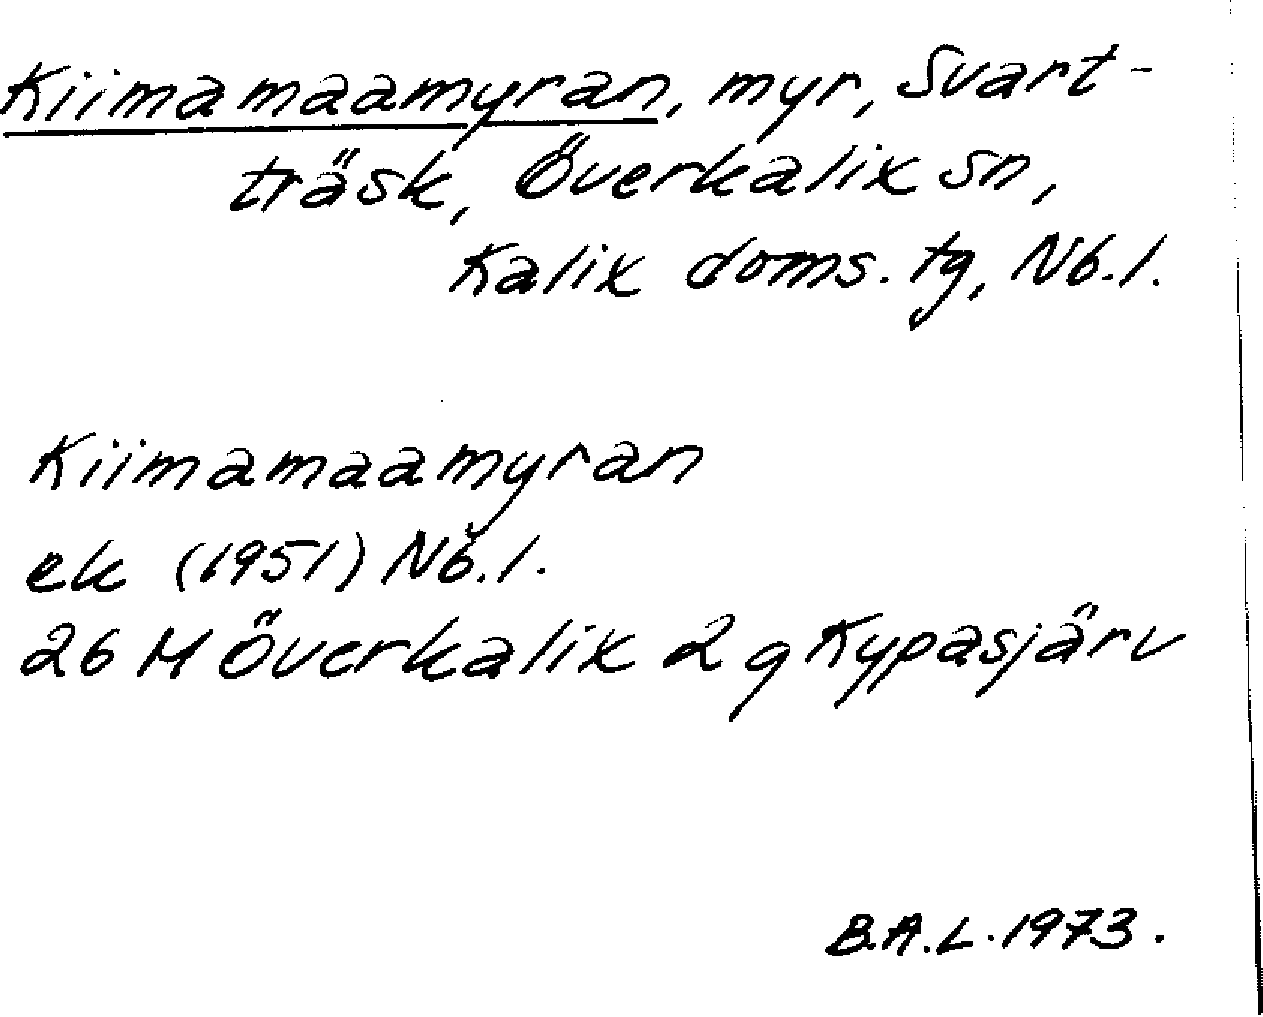 Kiimamaamyran, myr, Svart-
träsk, Överkalix sn,
Kalix doms. tg, Nb. l.
Kiimamaamyran
ek (1951) Nb. l.
26 M Överkalix 2 g Kypasjärv
B.A.L. 1973.